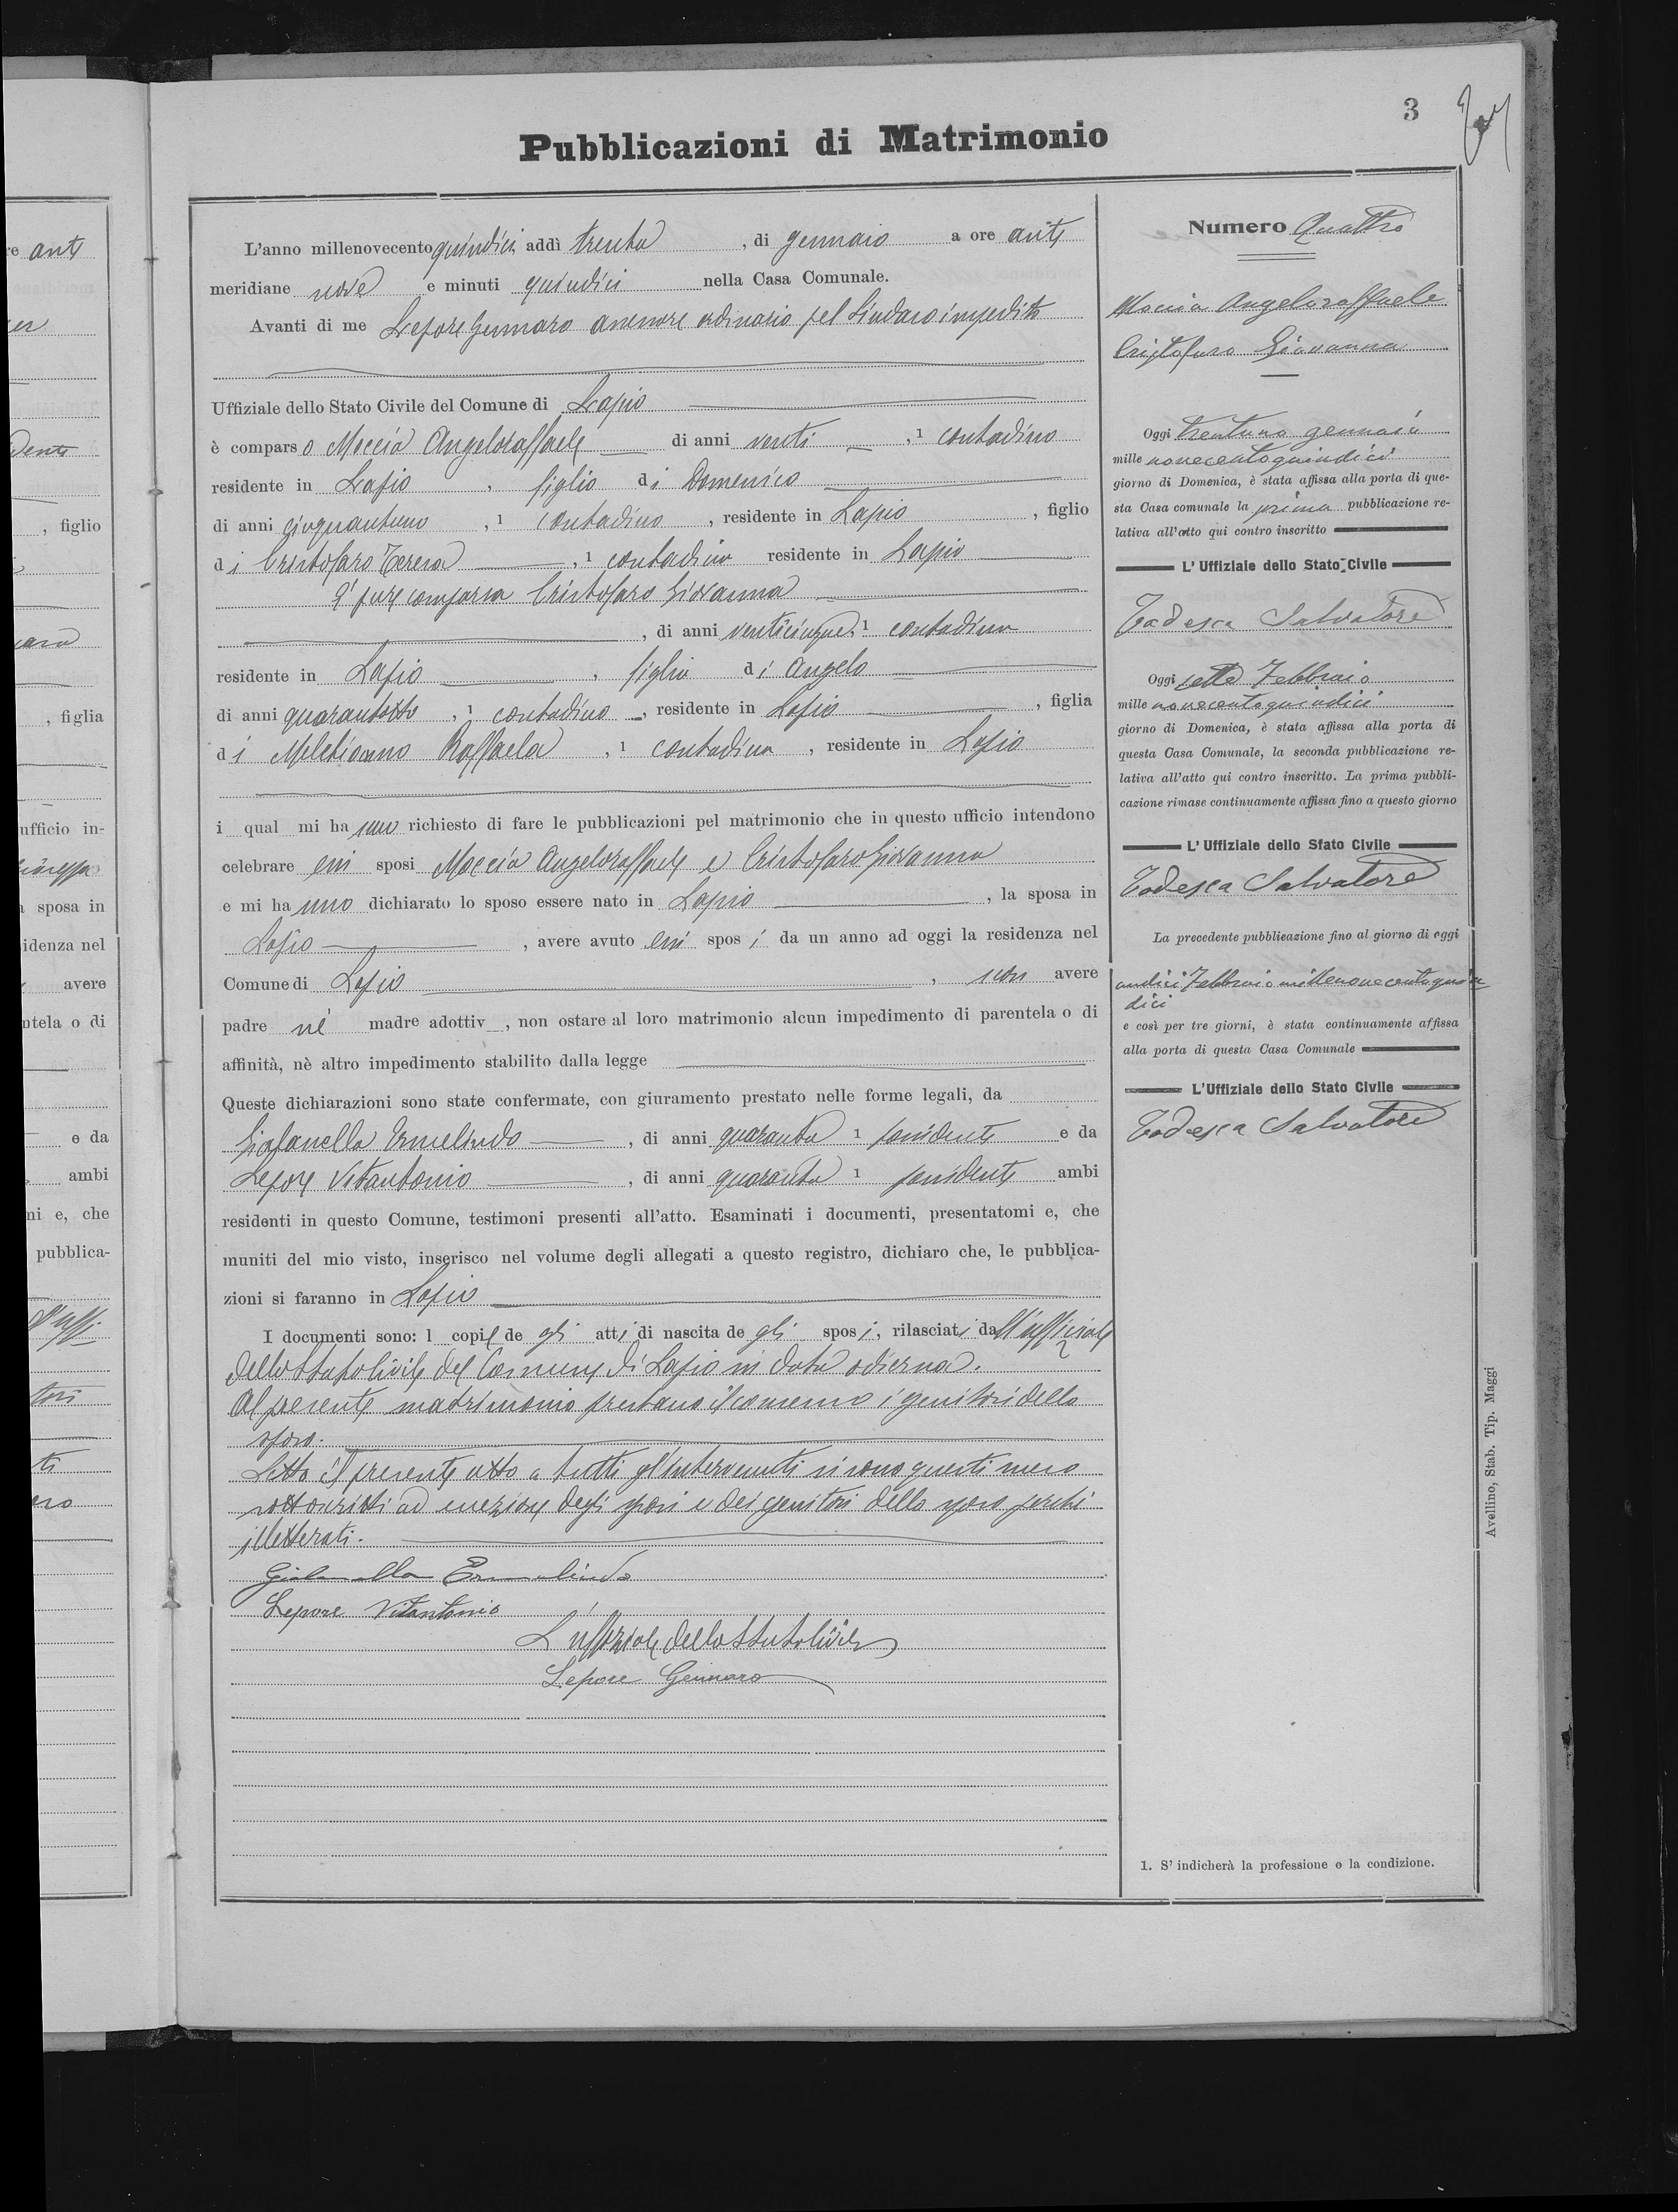 3
Pubblicazioni di Matrimonio
L'anno millenovecento quindici addì trenta, di gennaio a ore anti
meridiane nove e minuti quindici nella Casa Comunale.
Avanti di me Lepore Gennaro assessore ordinario pel Sindaco impedito
Uffiziale dello Stato Civile del Comune di Lapio
è comparso Moccia Angeloraffaele di anni venti, 1 contadino
residente in Lapio, figlio di Domenico
di anni cinquantuno, 1 contadino, residente in Lapio, figlio
di Cristofaro Teresa, 1 contadina residente in Lapio
È pure comparsa Cristofaro Giovanna
, di anni venticinque, 1 contadina
residente in Lapio, figlia di Angelo
di anni quarantotto, 1 contadino, residente in Lapio, figlia
di Meletiranno Raffaela, 1 contadina, residente in Lapio
i qual mi hanno richiesto di fare le pubblicazioni pel matrimonio che in questo ufficio intendono
celebrare essi sposi Moccia Angeloraffaele e Cristofaro Giovanna
e mi hanno dichiarato lo sposo essere nato in Lapio, la sposa in
Lapio, avere avuto essi sposi da un anno ad oggi la residenza nel
Comune di Lapio, non avere
padre né madre adottiv, non ostare al loro matrimonio alcun impedimento di parentela o di
affinità, nè altro impedimento stabilito dalla legge
Queste dichiarazioni sono state confermate, con giuramento prestato nelle forme legali, da
Ermelindo, di anni quaranta 1 possidente e da
Lepore Vitantonio, di anni quaranta 1 possidente ambi
residenti in questo Comune, testimoni presenti all'atto. Esaminati i documenti, presentatomi e, che
muniti del mio visto, inserisco nel volume degli allegati a questo registro, dichiaro che, le pubblica-
zioni si faranno in Lapio
I documenti sono: l copie de gli atti di nascita de gli sposi, rilasciati dall'uffiziale
dello Stato Civile del Comune di Lapio in data odierna.
Al presente matrimonio prestano il consenso i genitori dello
sposo.
Letto il presente atto a tutti gl'intervenuti si sono questi meco
sottoscritti ad eccezione degli sposi e dei genitori dello sposo perché
illetterati.
Ermelindo
Lepore Vitantonio
L'uffiziale dello Stato Civile
Lepore Gennaro
Numero Quattro
Moccia Angeloraffaele
Cristofaro Giovanna
Oggi trentuno gennaio
mille novecentoquindici
giorno di Domenica, è stata affissa alla porta di que-
sta Casa comunale la prima pubblicazione re-
lativa all'atto qui contro inscritto
L'Uffiziale dello Stato Civile
Todesca Salvatore
Oggi sette Febbraio
mille novecentoquindici
giorno di Domenica, è stata affissa alla porta di
questa Casa Comunale, la seconda pubblicazione re-
lativa all'atto qui contro inscritto. La prima pubbli-
cazione rimase continuamente affissa fino a questo giorno
L'Uffiziale dello Stato Civile
Todesca Salvatore
La precedente pubblicazione fino al giorno di oggi
undici Febbraio millenovecentoquin
dici
e così per tre giorni, è stata continuamente affissa
alla porta di questa Casa Comunale
L'Uffiziale dello Stato Civile
Todesca Salvatore
1. S'indicherà la professione o la condizione.
Avellino, Stab. Tip. Maggi